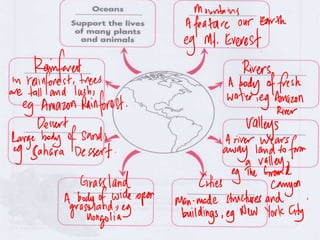 Oceans
Support the lives
of many plants
and animals
Mountains
A feature our Earth
eg Mt. Everest
Rainforest
in rainforest, trees
are tall and lush,
eg Amazon Rainforest.
Rivers
A body of fresh
water, eg Amazon
River
Desert
Large body of sand
eg Sahara Dessert.
Valleys
A river wears
away land to form
a valley,
eg The Grand
Canyon
Grassland
A body of wide open
grassland, eg
Mongolia
Cities
Man-made structures and
buildings, eg New York City